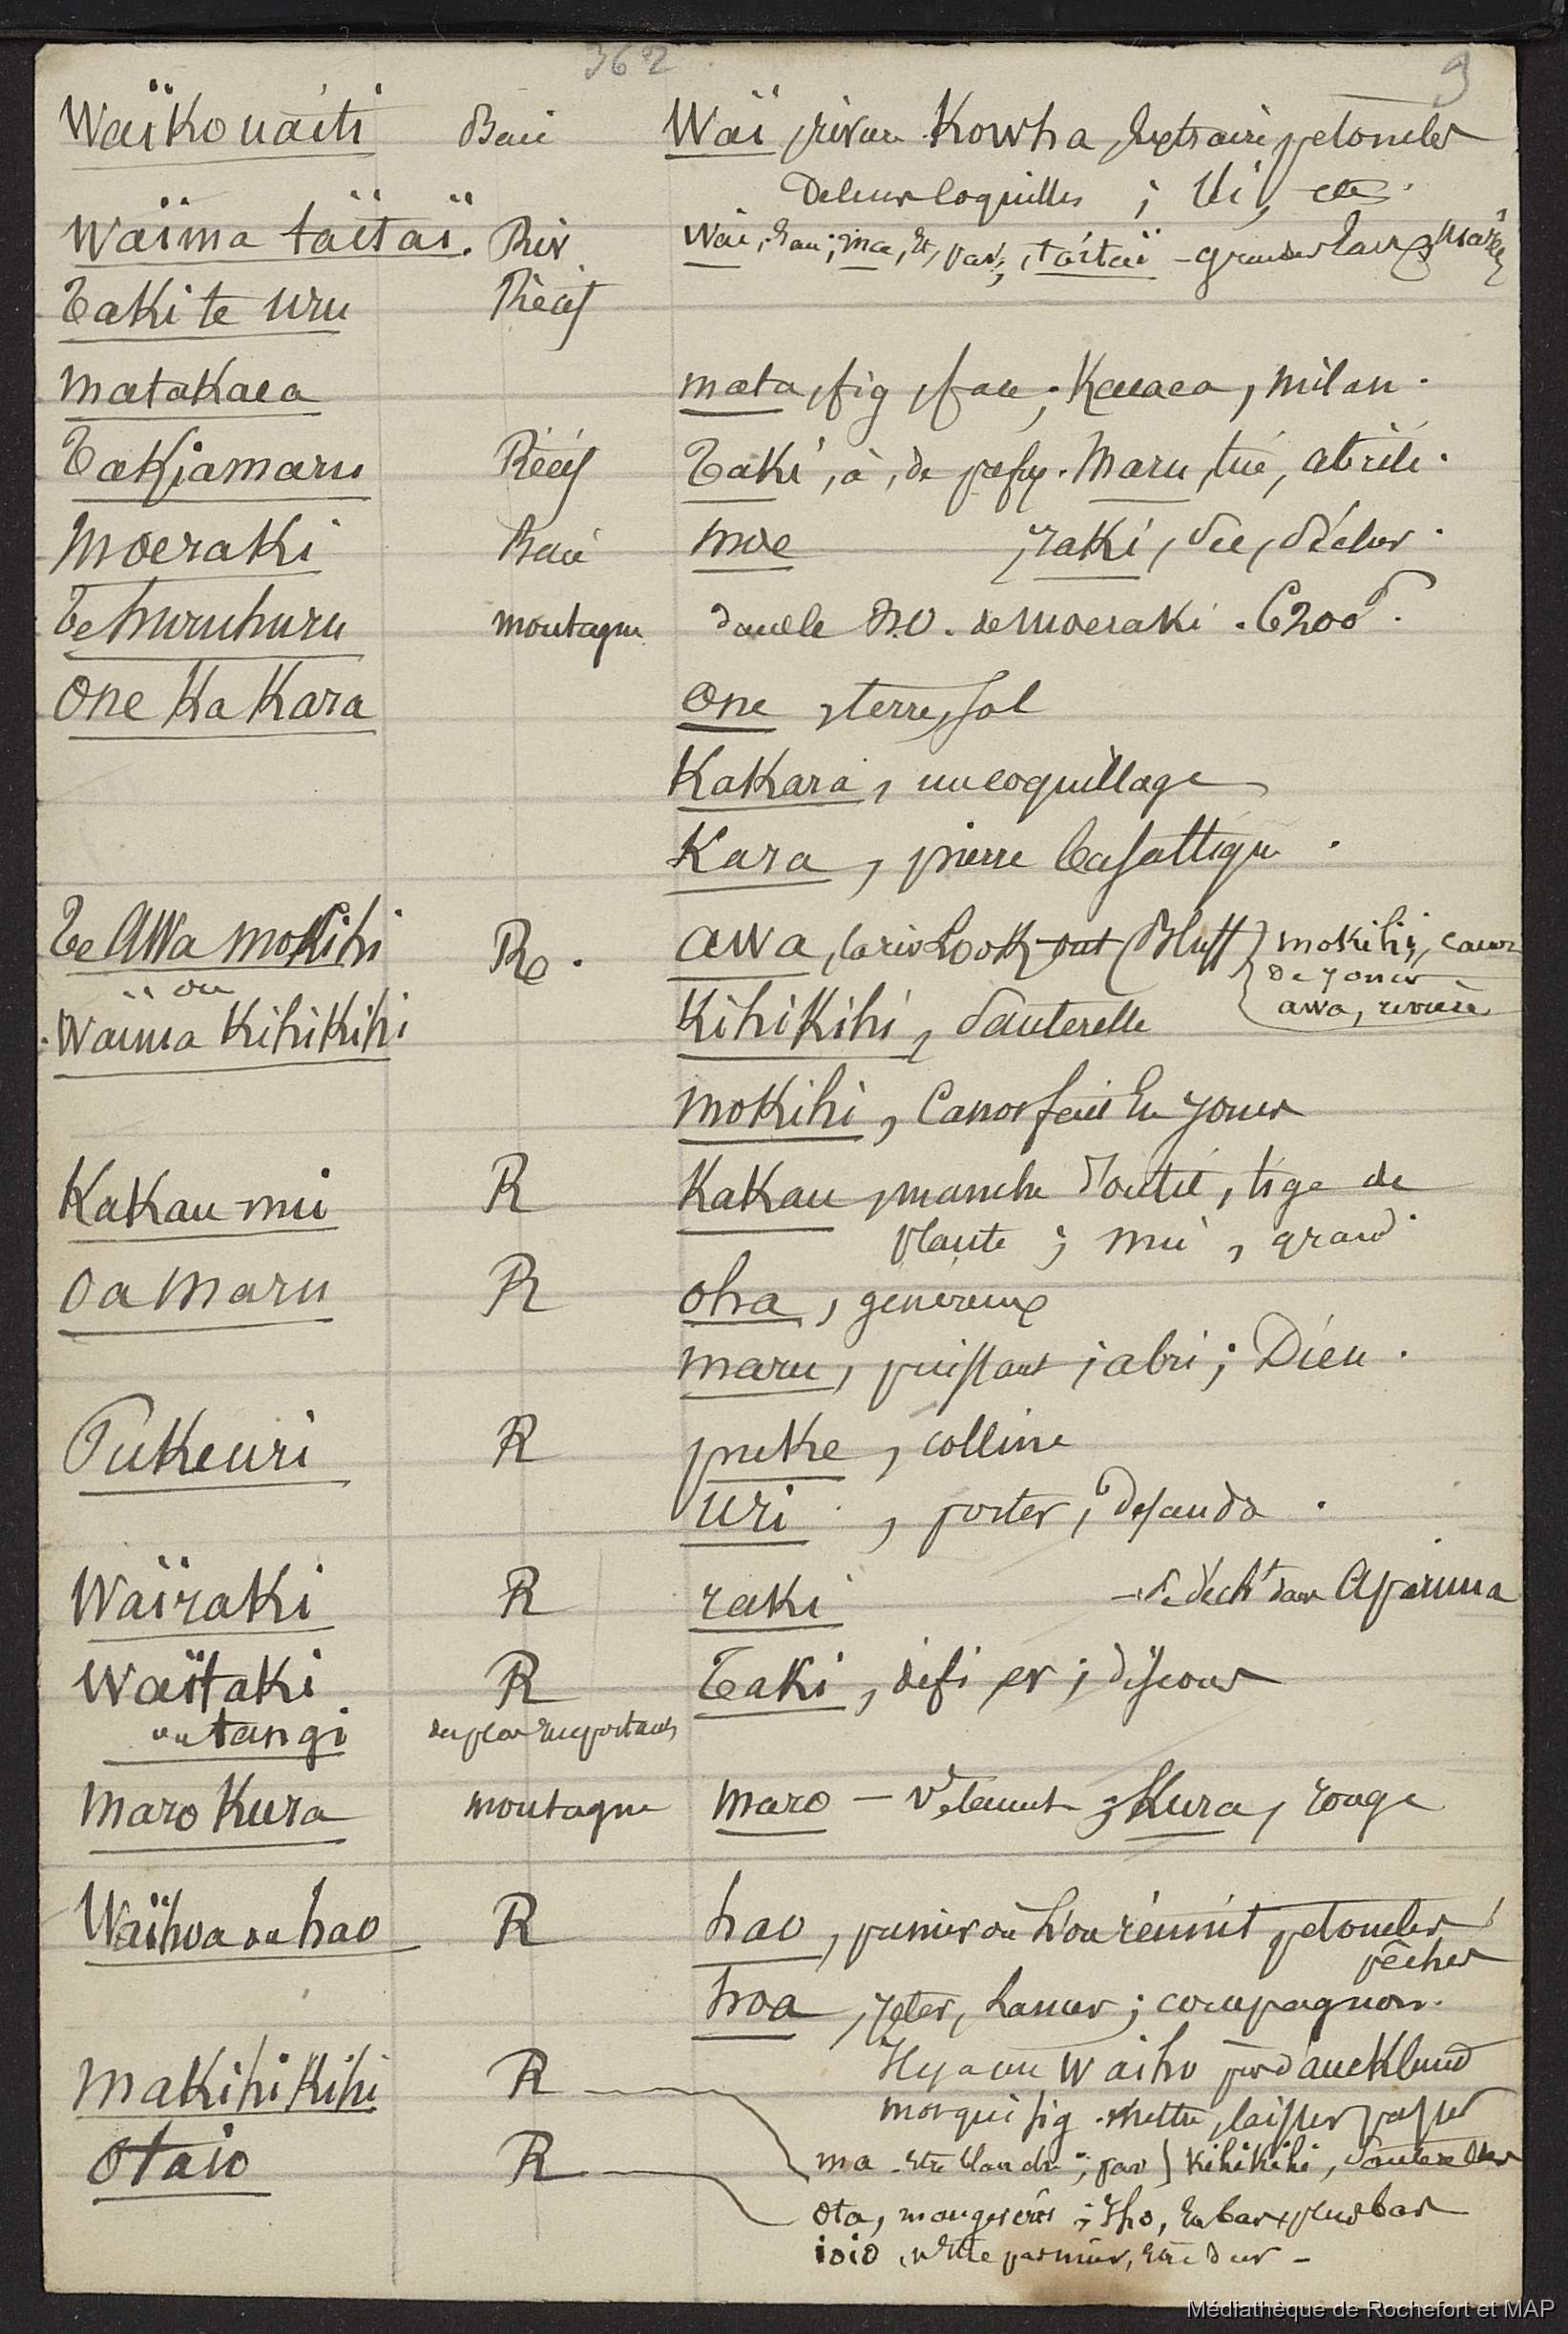 362 9
Waïkouaiti Baie Waï, rivière Kowha, extraire pétoncles
de leur coquilles ; Iti, etc.
Waïma taïtaï. Riv Waï, Eau ; ma, Et, par ; taïtaï - grandes Eaux,
Taki te uru Récif
Matakaea mata, fig, face ; Kaeaea, milan.
Takiamaru Récif Taki, à, de Maru, tué, abrité.
Moeraki Baie moe raki, sec,
Te huruhuru montagne dans le N.O. de Moeraki . 6200 p.
One Kakara One, terre, sol
Kakara, un coquillage
Kara, pierre basaltique.
Te Awa mokihi R. awa, la riv Look-out (Bluff) mokihi, canot
de joncs
ou awa, rivière
Waïma Kihikihi Kihikihi, Sauterelle
mokihi, Canot fait En joncs
Kakau nui R Kakau, manche d'outil, tige de
plante ; nui, grand
Oamaru R oha, généreux
maru, puissant ; abri ; Dieu.
Pukeuri R puke, colline
uri, poster, descends.
Waïraki R raki - se décht dans Aparima
Waïtaki R Taki, défier ; discours
ou tangi des plus importants
Maro Kura montagne maro - vêtement ; Kura, rouge
Waïhoa ou hao R hao, panier où l'on réunit pétoncles
pêcher
hoa, jeter, lancer ; compagnon.
Makihikihi R Il y a un Waiho près d'Auckland
mot qui sig. mettre, laisser passer
Otaio R ma - être blanche ; par } Kihikihi, Sauterelles
ota, manger crus ; Iho, En bas, plus bas
ioio, n'être pas mûr, être dur -
Médiathèque de Rochefort et MAP